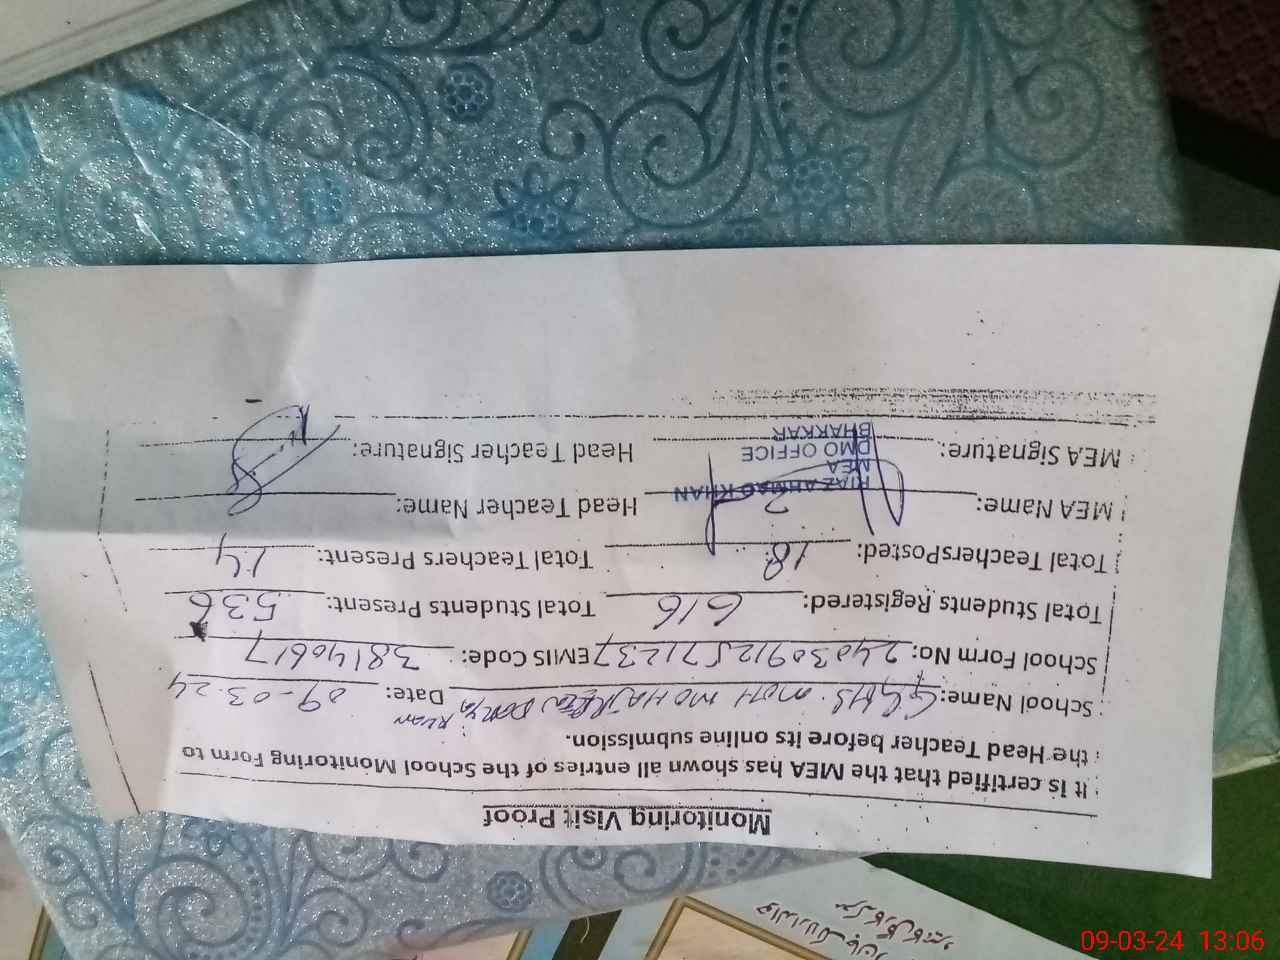 Monitoring Visit Proof
It is certified that the MEA has shown all entries of the School Monitoring Form to
the Head Teacher before its online submission.
School Name: GGHS. MOH MOHAJREEN DARYA KHAN Date: 09-03-24
School Form No: 2403091257 1237 EMIS Code: 38140617
Total Students Registered: 616 Total Students Present: 536
Total TeachersPosted: 18 Total Teachers Present: 14
MEA Name: Head Teacher Name:
RIAZ AHMAD KHAN
MEA
DMO OFFICE
BHAKKAR
MEA Signature: Head Teacher Signature:
09-03-24 13:06